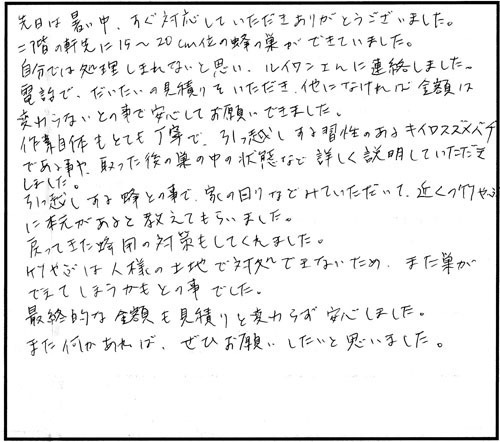 先日は暑い中、すぐ対応していただきありがとうございました。
二階の軒先に15～20cm位の蜂の巣ができていました。
自分では処理しきれないと思い、ルイワンさんに連絡しました。
電話で、だいたいの見積りをいただき、他になければ金額は
変わらないとの事で安心してお願いできました。
作業自体もとても丁寧で、引っ越しする習性のあるキイロスズメバチ
である事や、取った後の巣の中の状態など詳しく説明していただき
ました。
引っ越しする蜂との事で、家の回りなどみていただいて、近くの竹やぶ
に本元があると教えてもらいました。
戻ってきた蜂用の対策もしてくれました。
竹やぶは人様の土地で対処できないため、また巣が
できてしまうかもとの事でした。
最終的な金額も見積りと変わらず安心しました。
また何かあれば、ぜひお願いしたいと思いました。